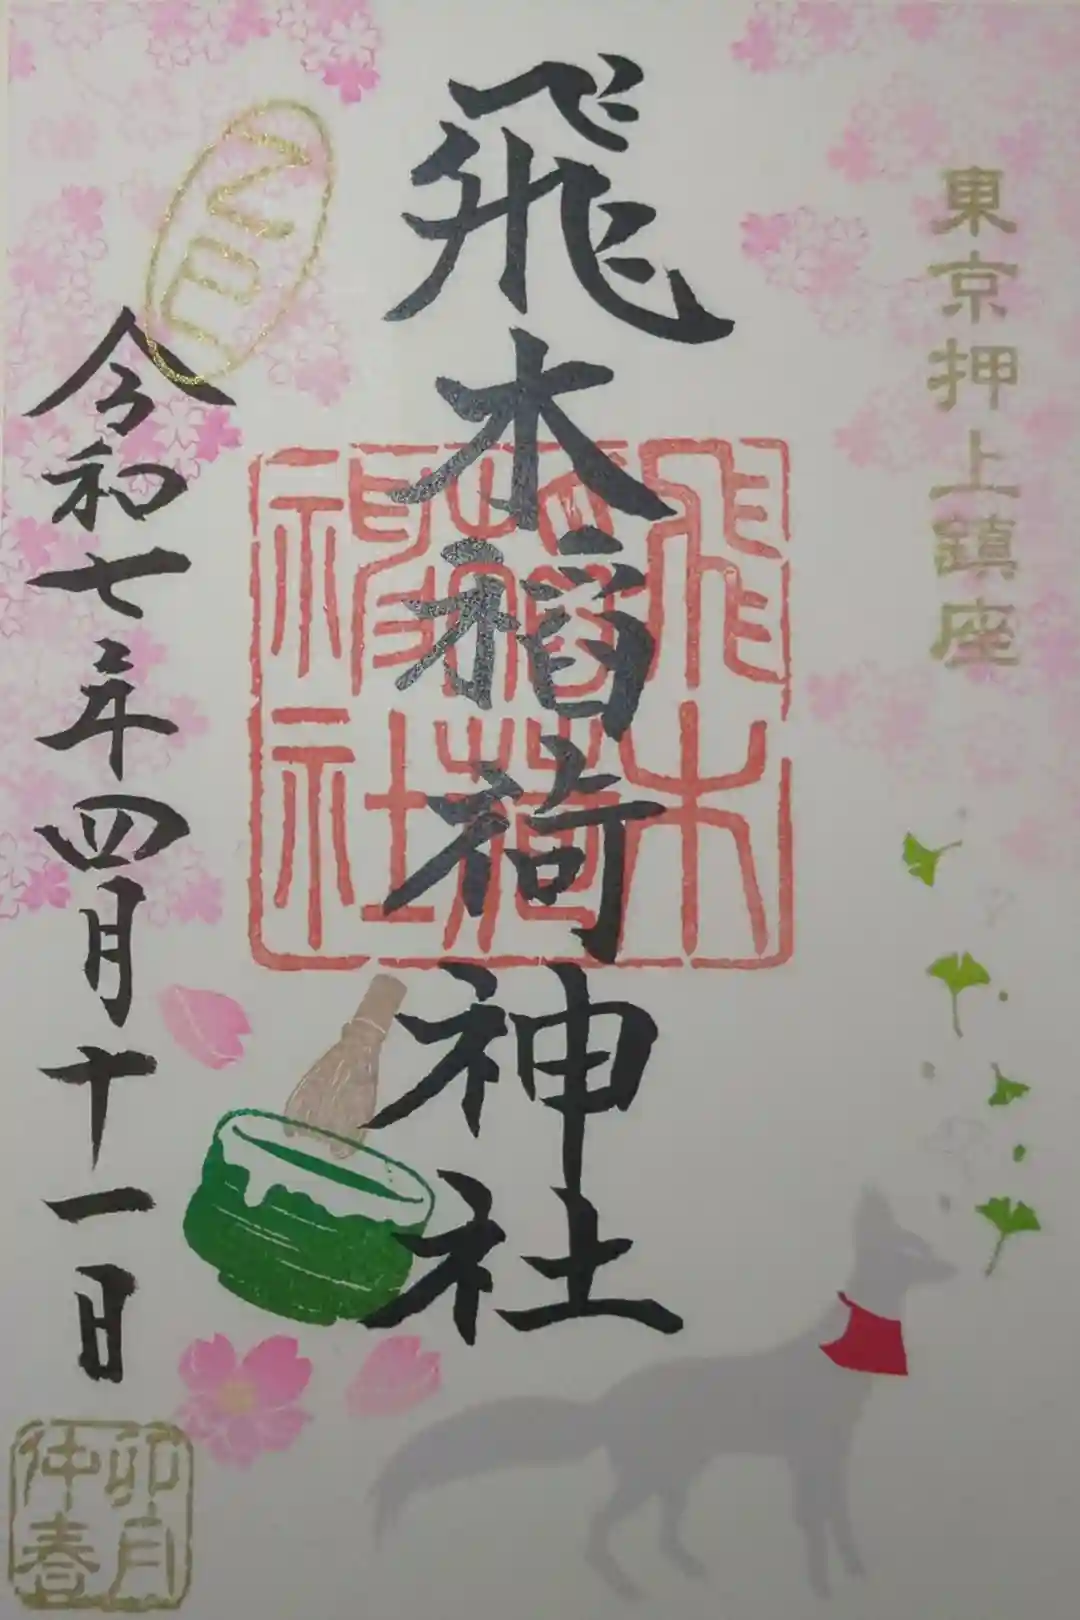 東京押上鎮座
飛木稲荷神社
飛木
稲荷
神社
令和七年四月十一日
卯月
仲春